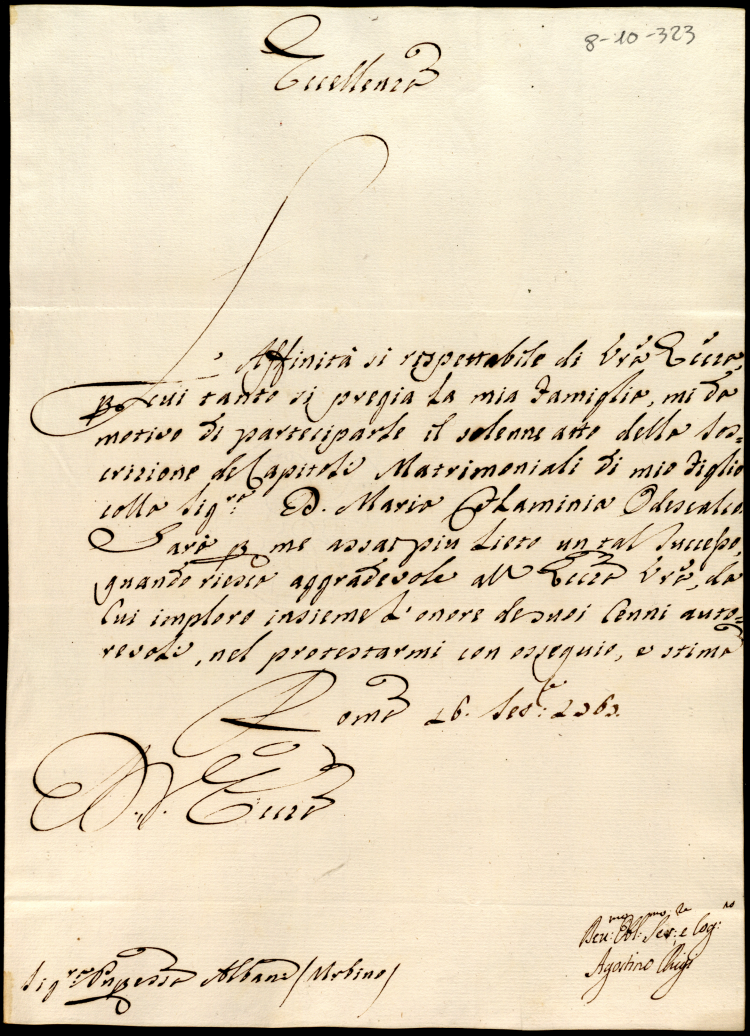 8-10-323
Eccellenza
L' Affinità si rispettabile di Vrã Eccza,
p cui tanto si pregia la mia Famiglia, mi dà
motivo di parteciparle il solenne atto della Sos=
crizione de Capitoli Matrimoniali di mio Figlio
colla Sigra: D. Maria Flaminia Odescalco.
Sarà p me assai più lieto un tal Successo,
quando riesca aggradevole all' Eccza Vrã, da
Cui imploro insieme l' onore de suoi Cenni auto=
revoli, nel protestarmi con ossequio, e stima
Roma 26. Sere: 1763.
D. V. Eccza
Sigra Pnpessa Albani (Urbino)
Devmo: Oblmo: Serre: e Cogno
Agostino Chigi